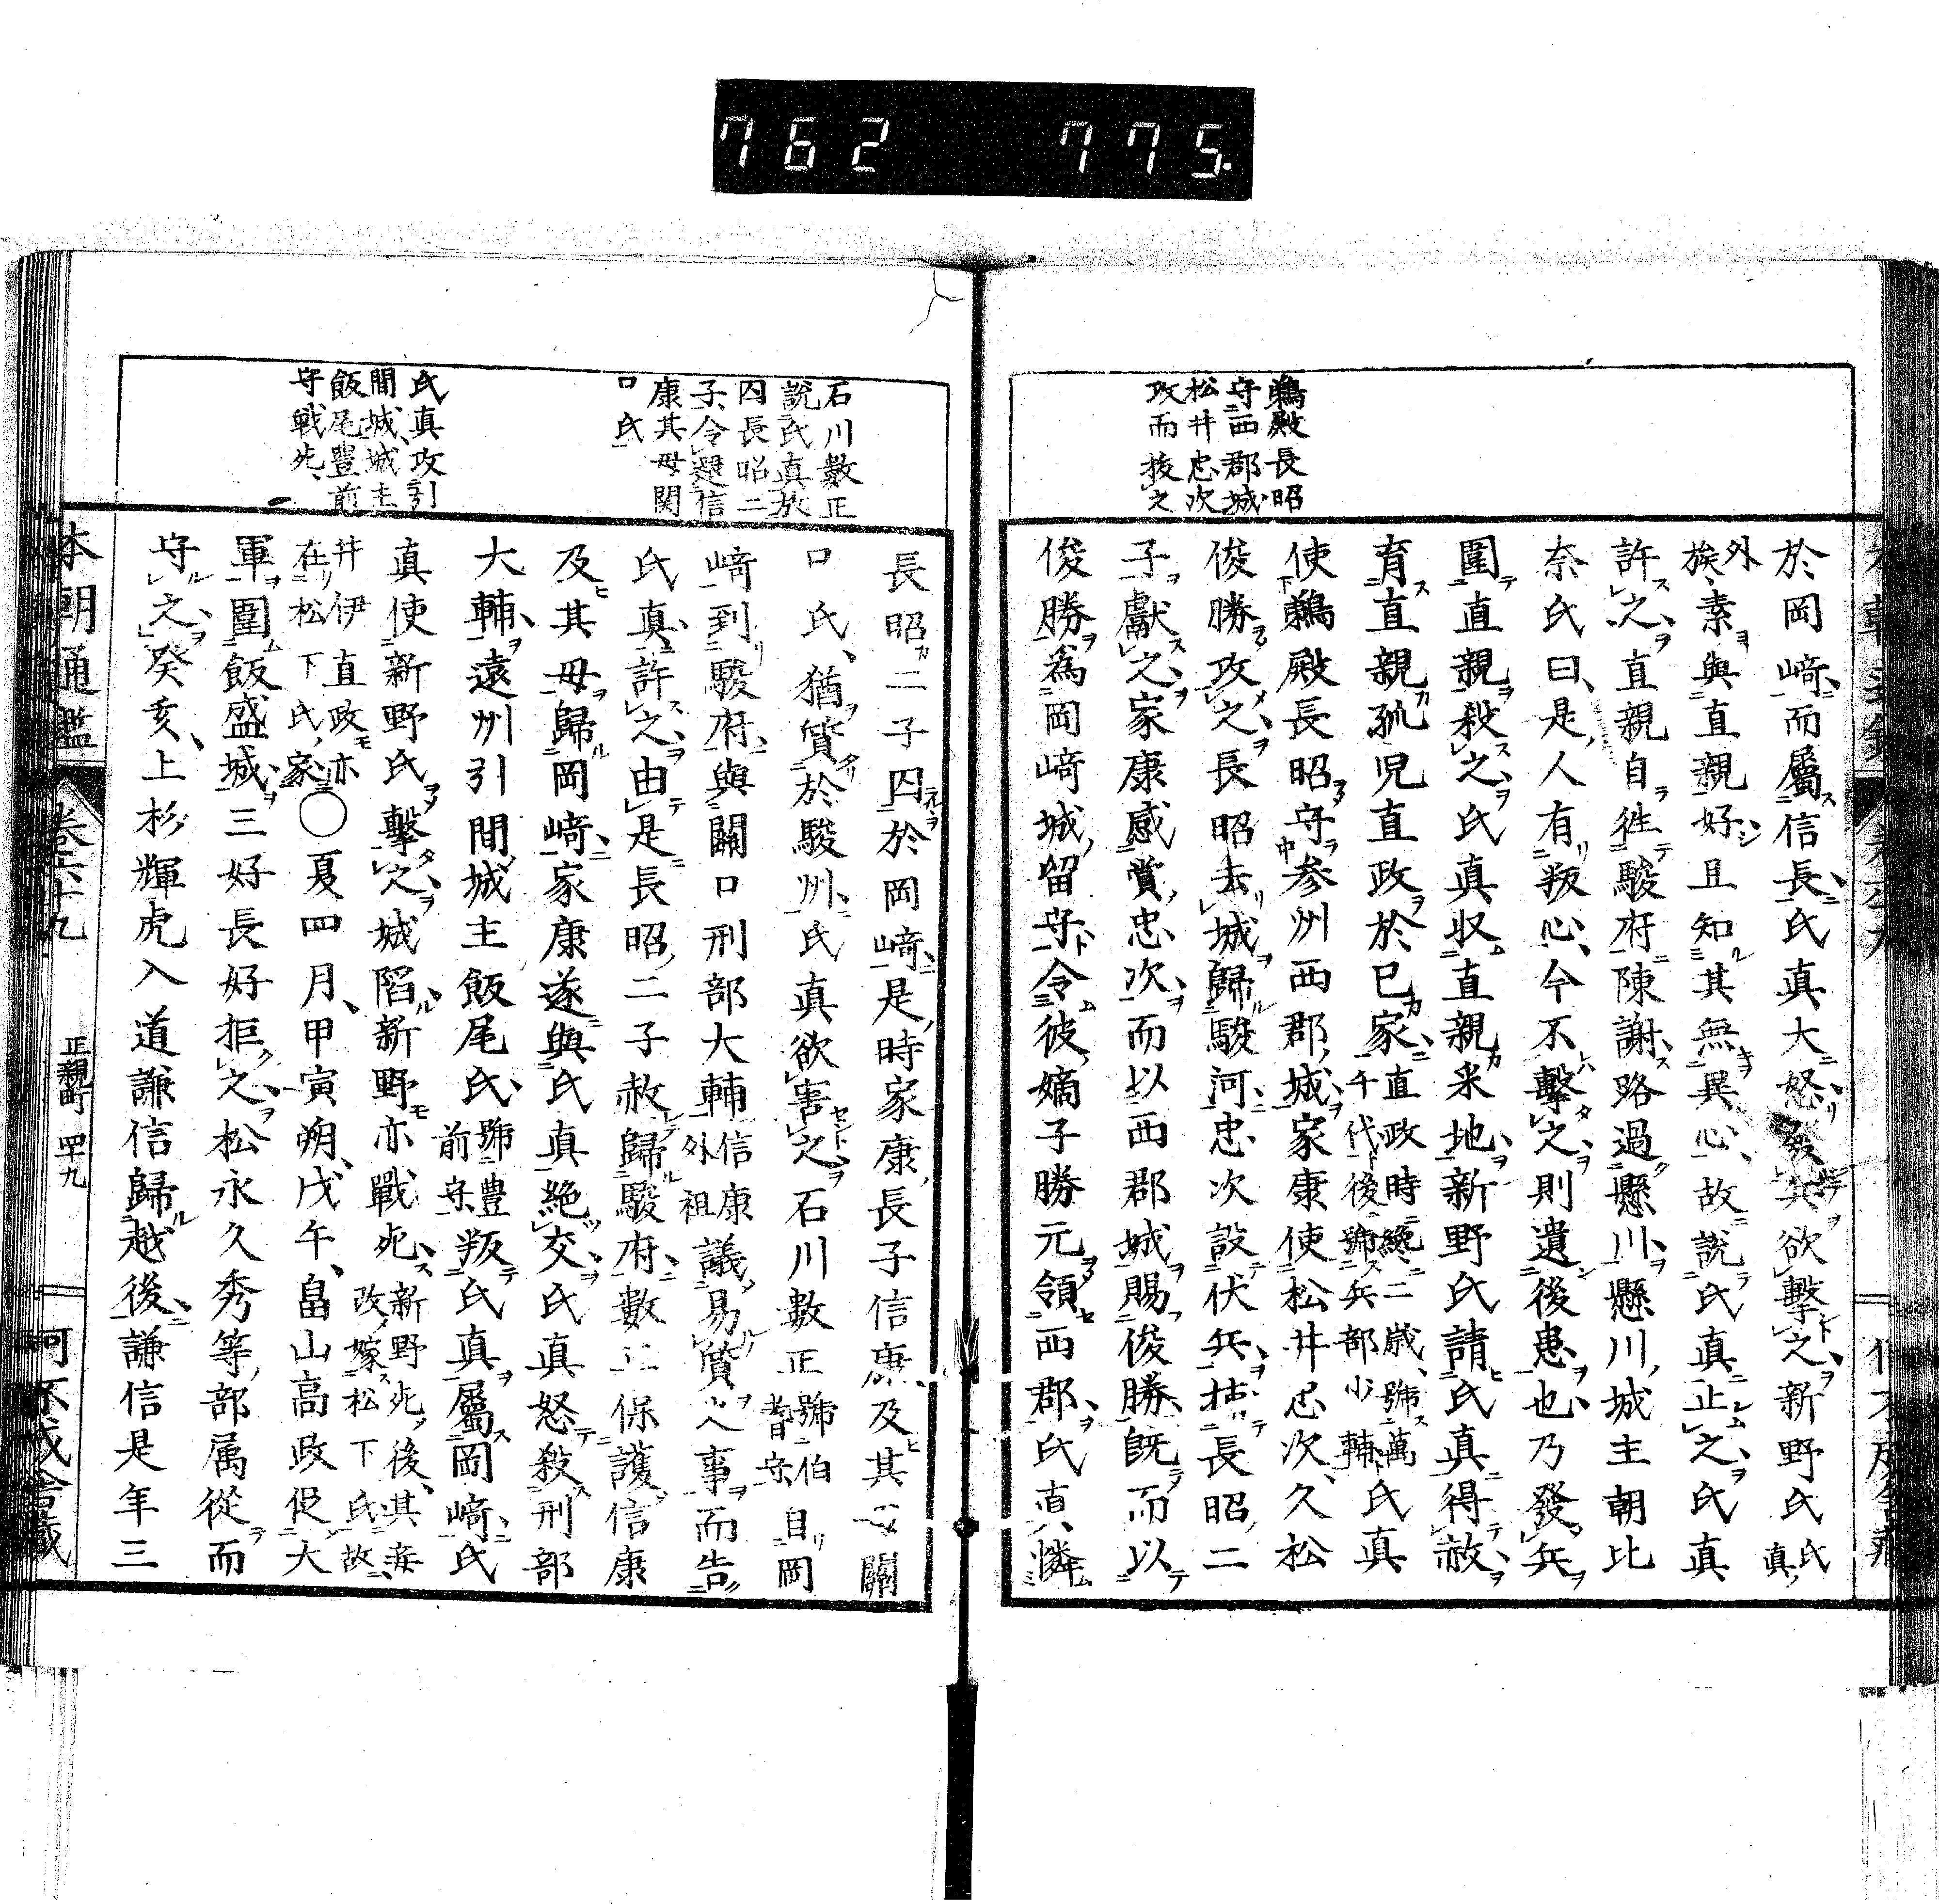 762 775.
鵜殿長昭
守西郡城
松井忠次
攻而拔之
於岡﨑而屬信長氏真大怒發兵欲擊之新野氏氏真
外族素與直親好且知其無異心故說氏真止之氏真
許之直親自徃駿府陳謝路過懸川懸川城主朝比
奈氏曰是人有叛心今不擊之則遺後患也乃發兵
圍直親殺之氏真収直親采地新野氏請氏真得赦
育直親孤児直政於已家直政時纔二歳號萬千代後號兵部少輔氏真
使鵜殿長昭守参州西郡城家康使松井忠次久松
俊勝攻之長昭去城歸駿河忠次設伏兵擒長昭二
子獻之家康感賞忠次而以西郡城賜俊勝既而以
俊勝為岡﨑城留守令彼嫡子勝元領西郡氏真憐
石川數正
說氏真放
囚長昭二
子令還信
康其母関
口氏
氏真攻引
間城城主
飯尾豐前
守戦死
長昭二子囚於岡﨑是時家康長子信康及其母關
口氏猶質於駿州氏真欲害之石川數正號伯耆守自岡
﨑到駿府與關口刑部大輔信康外祖議易質人事而告
氏真許之由是長昭二子赦歸駿府數正保護信康
及其母歸岡﨑家康遂與氏真絶交氏真怒殺刑部
大輔遠州引間城主飯尾氏號豊前守叛氏真屬岡﨑氏
真使新野氏擊之城陷新野亦戰死新野死後其妻改嫁松下氏故
井伊直政亦在松下氏家○夏四月甲寅朔戊午畠山高政促大
軍圍飯盛城三好長好拒之松永久秀等部属從而
守之癸亥上杉輝虎入道謙信歸越後謙信是年三
本朝通鑑 卷六十九 正親町 四十九